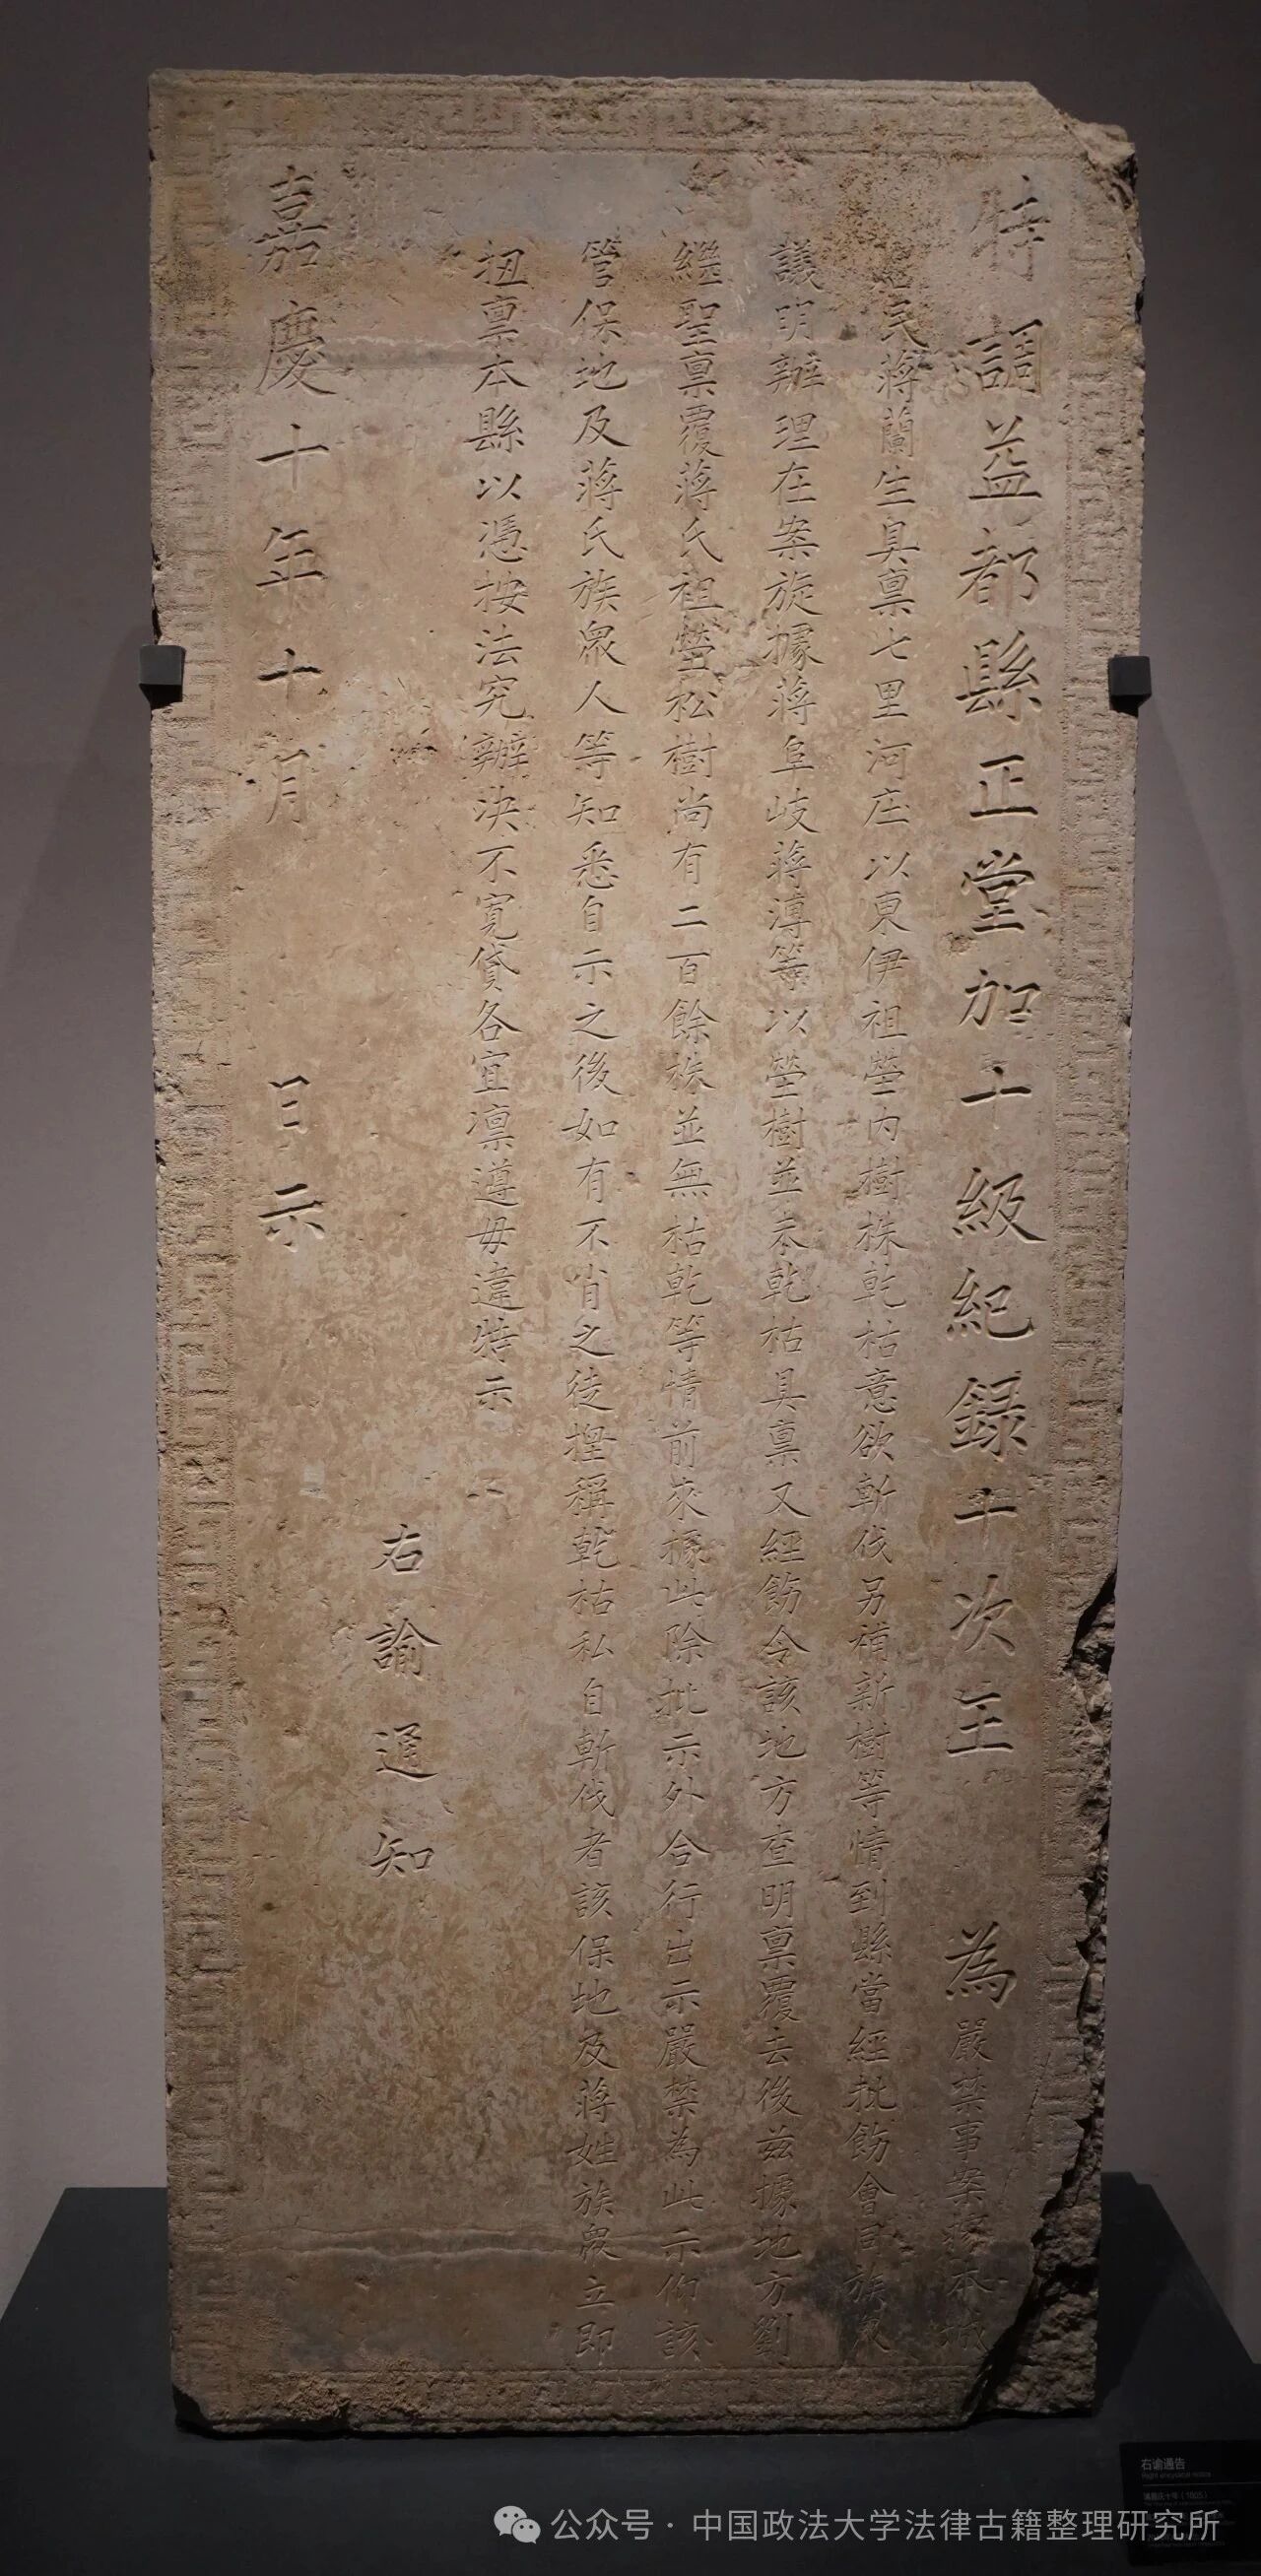 特調益都縣正堂加十級紀錄十次王 為嚴禁事案據本城
民蔣蘭生具稟七里河庄以東伊祖塋內樹株乾枯意欲斬伐另補新樹等情到縣當經批飭會同族眾
議明辦理在案旋據蔣阜岐蔣溥等以塋樹並未乾枯具稟又經飭令該地方查明稟覆去後茲據地方劉
繼聖稟覆蔣氏祖塋松樹尚有二百餘株並無枯乾等情前來據此除批示外合行出示嚴禁為此示仰該
管保地及蔣氏族眾人等知悉自示之後如有不肖之徒捏稱乾枯私自斬伐者該保地及蔣姓族眾立即
扭稟本縣以憑按法究辦決不寬貸各宜凜遵毋違特示
右諭通知
嘉慶十年十月 日示
右谕通告
清嘉庆十年（1805）
公众号·中国政法大学法律古籍整理研究所